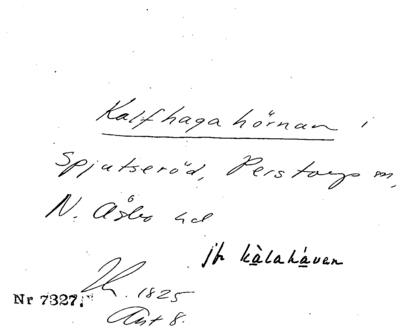 Kalfhaga hörnan i
Spjutseröd, Perstorps sn,
N. Åsbo hd
jfr kàlahàven
Nr 7327. 1825
Akt 8.